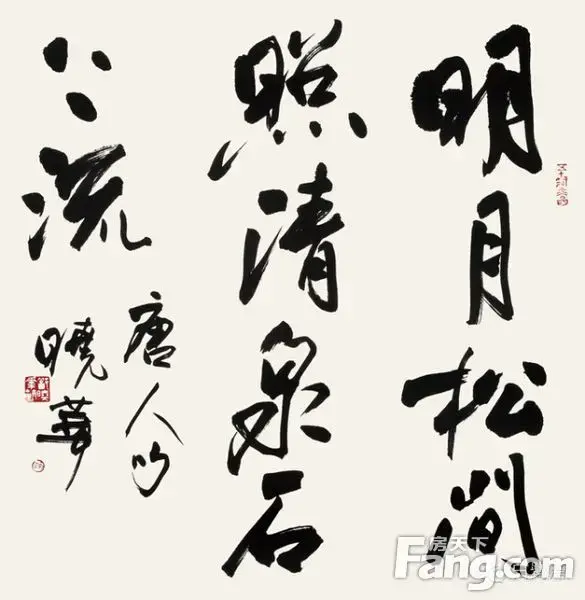 明月松間
照清泉石
上流
唐人句
曉華
房天下
Fang.com